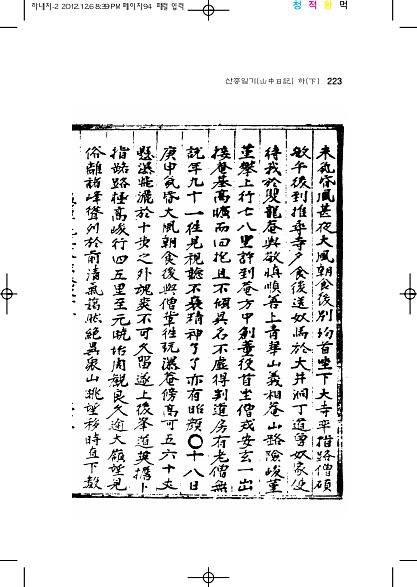 하네지-2 2012.12.6 8:39 PM 페이지94
청 적 황 먹
산중일기(山中日記) 하(下) 223
昏風甚夜大風朝食後別均首坐下大寺平借路僧碩
敏午後到推尋寺夕食後送奴馬於大井洞丁道曾奴家使
待我於雙龍庵與敏愼順善上青華山義相庵山路險峻董
董攀上行七八里許到庵方中創董役首坐僧戎安玄一出
接庵基高曠而四抱且不傾其名不虛得到道房有老僧無
說年九十一往見視聽不衰精神了了亦有昭顔○十八日
庚申氣昏大風朝食後與僧輩往玩瀑庵傍高可五六十丈
懸瀑飛灑於十步之外魂爽不可久留遂上後峯道英擔卜
指路路極高峻行四五里至元曉坊周觀良久逾大嶺望見
俗離諸峰列於前清氣藹然絶異衆山挑望移時直下數